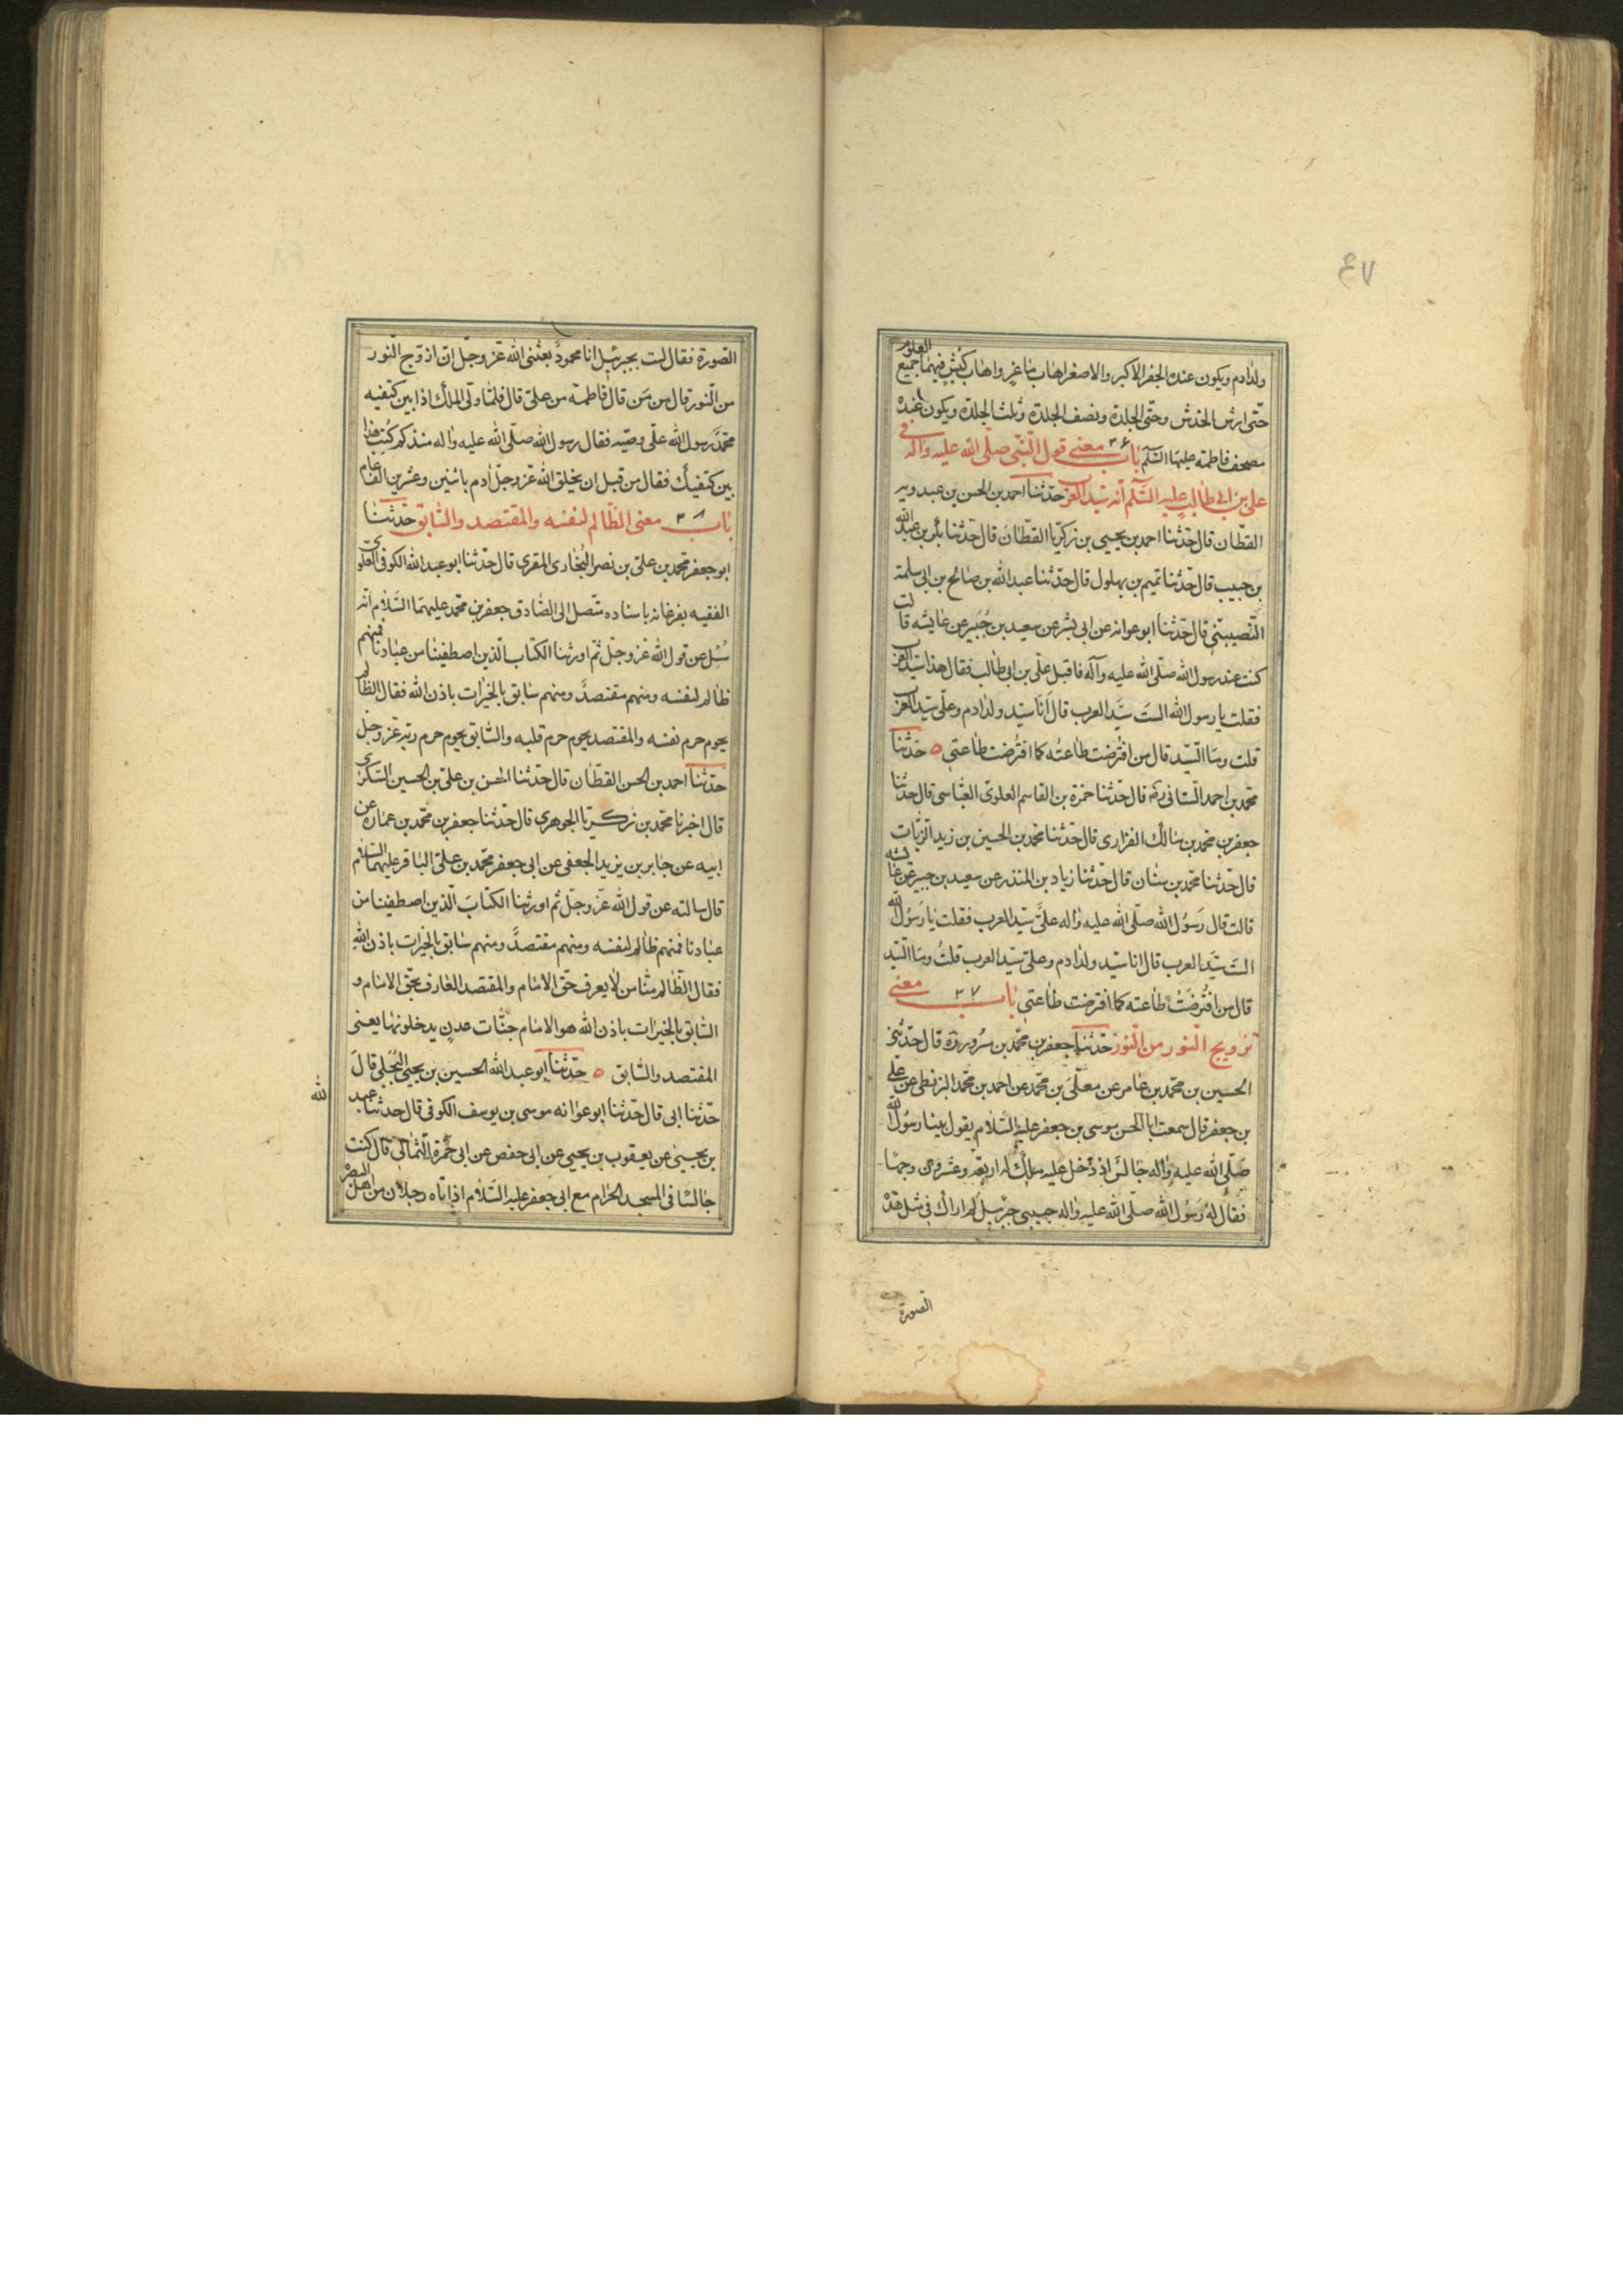 ٤٧
ولد ادم ويكون عنده الجفر الاكبر والاصغر اهاب ماعز واهاب كبش فيهما جميع العلوم
حتّى ارش الخدش وحتّى الجلدة ونصف الجلدة وثلث الجلدة ويكون عنده
مصحف فاطمة عليهما السّلم باب ٣٦ معنى قول النّبي صلّى الله عليه واله في
علي بن ابي طالب عليه السّلم انّه سيّد العرب حدّثنا احمد بن الحسن بن عبدويه
القطّان قال حدّثنا احمد بن يحيى بن زكريّا القطّان قال حدّثنا بكر بن عبد الله
بن حبيب قال حدّثنا تميم بن بهلول قال حدّثنا عبد الله بن صالح بن ابي سلمة
النّصيبيّ قال حدّثنا ابو عوانه عن ابي بشر عن سعيد بن جُبَير عن عايشه قالت
كنت عند رسول الله صلّى الله عليه وآله فاقبل علّي بن ابي طالب فقال هذا سيّد العرب
فقلت يا رسول الله الستَ سَيّد العرب قال اَنَا سيّد ولد ادم وعلّي سيّد العرب
قلت ومَا السّيّد قال من افتُرضت طاعتُه كما افتُرضت طاعتي ه حدّثنا
محمّد بن احمد السّناني ره قال حدّثنا حمزة بن القاسم العلويّ العبّاسي قال حدّثنا
جعفر بن محمّد بن مالك الفزاري قال حدّثنا محمّد بن الحسين بن زيد الزيّات
قال حدّثنا محمّد بن سنان قال حدّثنا زياد بن المنذر عن سعيد بن جبير عن عايشه
قالت قال رَسُول الله صلّى الله عليه واله علّي سيّد العرب فقلت يا رَسُول الله
الستَ سَيّد العرب قال انا سيّد ولد ادم وعلي سيّد العرب قلتُ ومَا السّيّد
قال من افتُرضَتْ طاعته كما افترضت طاعتي باب ٣٧ معنى
تزويج النّور من النّور حدّثنا جعفر بن محمّد بن مسرُور ره قال حدّثني
الحسين بن محمّد بن عامر عن معلّى بن محمّد عن احمد بن محمّد البزنطي عن علي
بن جعفر قال سمعت ابا الحسن موسى بن جعفر عليه السّلام يقول بينا رسُول الله
صَلّى الله عليه واله جالسٌ اذ دَخل عليه ملك له اربعة وعشرون وجها
فقال له رَسُول الله صلّى الله عليه واله حبيبي جبرئيل لم اراك في مثل هذه
الصورة
الصّورة فقال لست بجبرئيل انا محمودٌ بعثني الله عزّ وجلّ ان ازوّج النّور
من النّور قال من مَن قال فاطمة من علي قال فلمّا ولّى الملك اذا بين كتفيه
محمّدٌ رسول الله علّي وصيّه فقال رسول الله صلّى الله عليه واله منذ كم كُتب هذا
بين كتفيك فقال من قبل ان يخلق الله عزّ وجلّ ادم باثنين وعشرين الف عام
باب ٣٨ معنى الظّالم لنفسه والمقتصد والسّابق حدّثنا
ابو جعفر محمّد بن علي بن نصر البُخاري المقري قال حدّثنا ابو عبد الله الكوفي العلوي
الفقيه بفرغانه باسناده متّصل الى الصّادق جعفر بن محمّد عليهما السّلام انّه
سُئل عن قول الله عزّ وجلّ ثم اورثنا الكتاب الّذين اصطفينا من عبادنا فمنهم
ظالم لنفسه ومنهم مقتصدٌ ومنهم سابق بالخيرات باذن الله فقال الظّالم
يحوم حرم نفسه والمقتصد يحوم حرم قلبه والسّابق يحوم حرم ربّه عزّ وجلّ
حدّثنا احمد بن الحسن القطّان قال حدّثنا الحسن بن علي بن الحسين السّكري
قال اخبرنا محمّد بن زكريّا الجوهري قال حدّثنا جعفر بن محمّد بن عمّاره عن
ابيه عن جابر بن يزيد الجعفي عن ابي جعفر محمّد بن علي الباقر عليهما السّلام
قال سالته عن قول الله عزّ وجلّ ثم اورثنا الكتابَ الّذين اصطفينا من
عبادنا فمنهم ظالم لنفسه ومنهم مقتصدٌ ومنهم سابق بالخيرات باذن الله
فقال الظّالم منّا من لا يعرف حقّ الامام والمقتصد العارف بحقّ الامام و
السّابق بالخيرات باذن الله هو الامام جنّات عدنٍ يدخلونها يعني
المقتصد والسّابق ه حدّثنا ابو عبد الله الحسين بن يحيى البَجَلي قالَ
حدّثنا ابي قال حدّثنا ابو عوانه موسى بن يوسف الكوفي قال حدثنا عبد الله
بن يحيى عن يعقوب بن يحيى عن ابي حفص عن ابي حمزة الثّمالي قال كنت
جالسًا في المسجد الحرام مع ابي جعفر عليه السّلام اذ اتاه رجلان من اهل البصرة